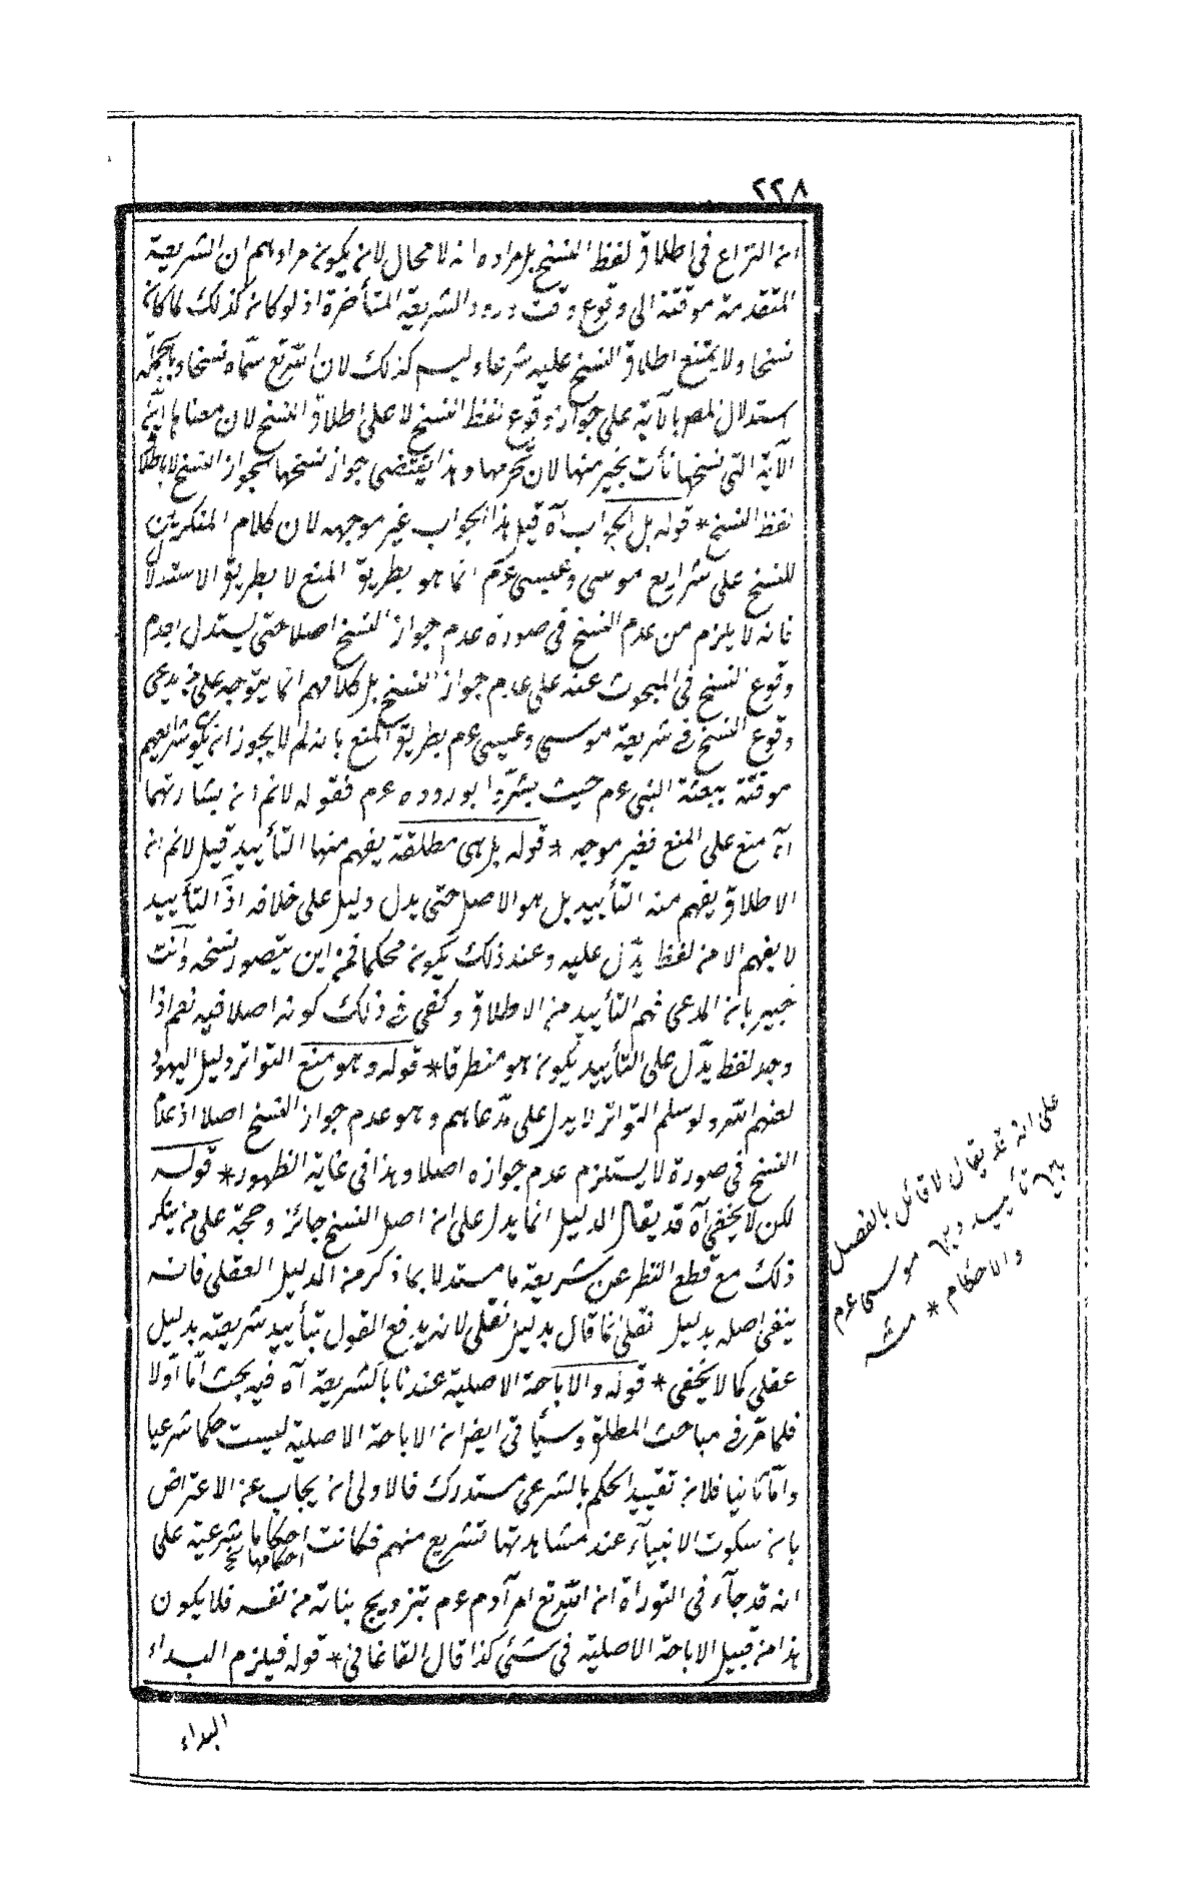 ٢٢٨
ان النزاع في اطلاق لفظ النسخ بل مراده انه لا مجال لان يكون مرادهم ان الشريعة
المتقدمة موقتة الى وقوع وقت ورود الشريعة المتأخرة اذ لو كان كذلك لما كان
نسخا ولا يمتنع اطلاق النسخ عليه شرعا وليس كذلك لان الله تع سماه نسخا وبالجملة
استدلال المص بالآية على جواز وقوع لفظ النسخ لا على اطلاق النسخ لان معناها ان
الآية التي ننسخها نأت بخير منها لان نحرمها وهذا يقتضي جواز نسخها لجواز النسخ لا باطلا
لفظ النسخ * قوله بل الجواب آه قيل هذا الجواب غير موجهه لان كلام المنكرين
للنسخ على شرايع موسى وعيسى عم انما هو بطريق المنع لا بطريق الاستدلال
فانه لا يلزم من عدم النسخ في صورة عدم جواز النسخ اصلا حتى يستدل بعدم
وقوع النسخ في المبحوث عنه على عدم جواز النسخ بل كلامهم انما يتوجه على من يدعى
وقوع النسخ في شريعة موسى وعيسى عم بطريق المنع بانه لم لا يجوز ان يكون شرايعهم
موقتة ببعثة النبي عم حيث بشروا بوروده عم فقوله لانم ان بشارتهما
آه منع على المنع فغير موجه * قوله بل هي مطلقة يفهم منها التأبيد قيل لانم ان
الاطلاق يفهم منه التأبيد بل هو الاصل حتى يدل دليل على خلافه اذ التأبيد
لا يفهم الا من لفظ يدل عليه وعند ذلك يكون محكما فمن اين يتصور نسخه وانت
خبير بان المدعى فهم التأبيد من الاطلاق وكفى في ذلك كونه اصلا فيه نعم اذا
وجد لفظ يدل على التأبيد يكون هو منطرقا * قوله وهو منع التواتر دليل اليهود
لعنهم الله ولو سلم التواتر لا يدل على مدعاهم وهو عدم جواز النسخ اصلا اذ عدم
النسخ في صورة لا يستلزم عدم جوازه اصلا وهذا في غاية الظهور * قوله
لكن لا يخفى آه قد يقال الدليل انما يدل على ان اصل النسخ جائز وحجة على من ينكر
ذلك مع قطع النظر عن شريعة ما مستدلا بما ذكر من الدليل العقلي فانه
ينفى اصله بدليل نقلي فما قال بدليل نقلي لانه يدفع القول بتأبيد شريعته بدليل
عقلي كما لا يخفى * قوله والاباحة الاصلية عندنا بالشريعة آه فيه بحث اما اولا
فلما مر في مباحث المطلق وسيأتي ايضا ان الاباحة الاصلية ليست حكما شرعيا
واما ثانيا فلان تقييد الحكم بالشرعي مستدرك فالاولى ان يجاب عن الاعتراض
بان سكوت الانبيآء عند مشاهدتها تشريع منهم فكانت احكاما شرعية على
احكامها نخ
انه قد جآء في التوراة ان الله تع امر آدم عم بتزويج بناته من نفسه فلا يكون
هذا من قبيل الاباحة الاصلية في شئي كذا قال القاغاني * قوله فيلزم البداء
البداء
على انه قد يقال لا قائل بالفصل
بين تأبيد دين موسى عم
والاحكام * منه